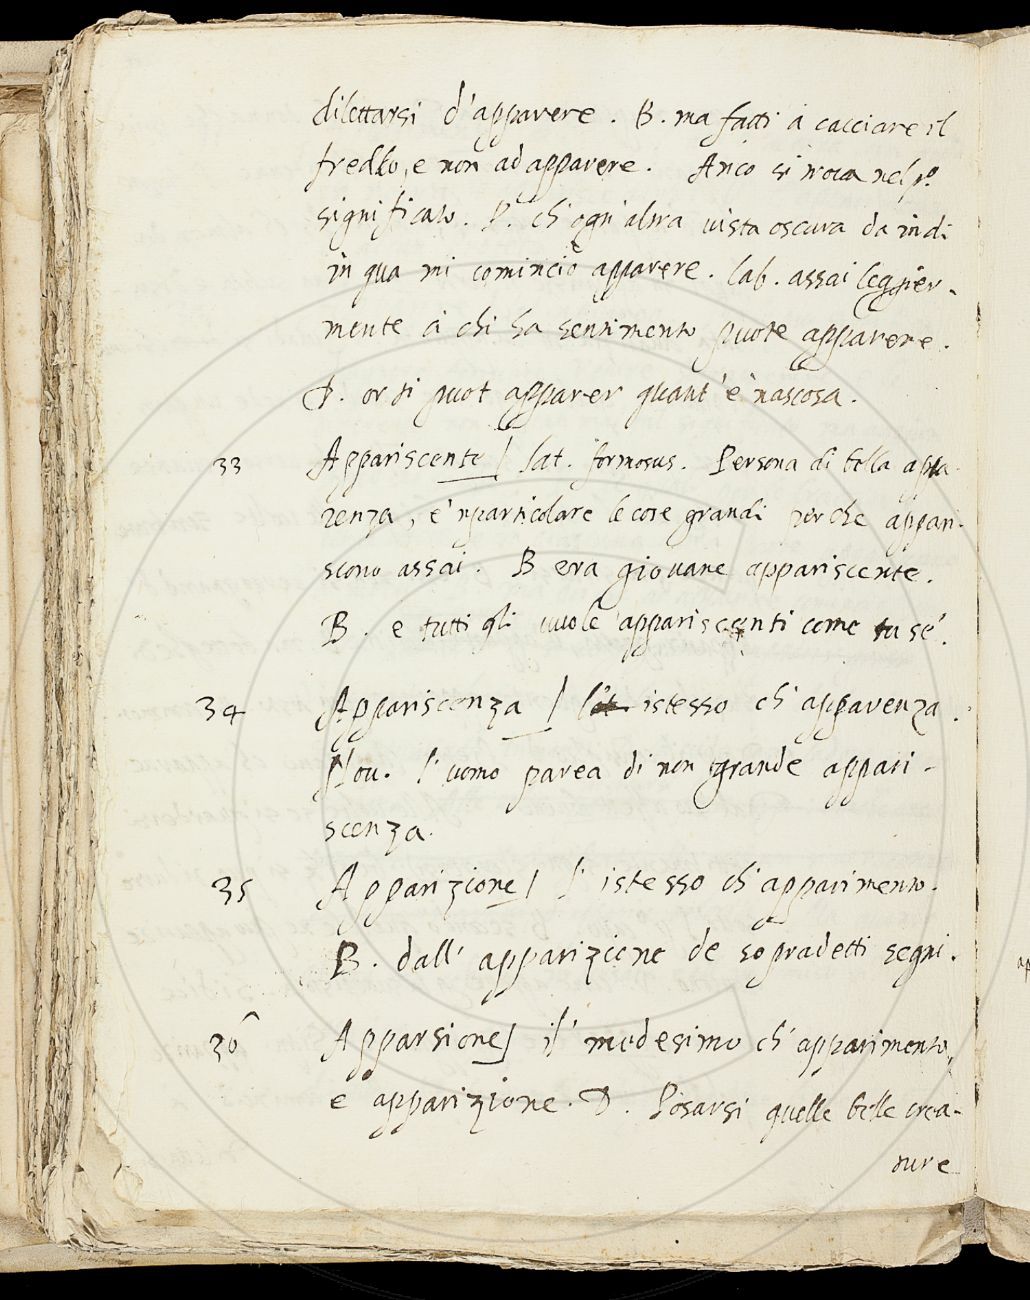 dilettarsi d'apparere. B. ma fatti à cacciare il
freddo, e non ad apparere. Anco si trova nel pº
significato. P. ch'ogn'altra vista oscura da indi
in qua mi cominciò apparere. Lab. assai leggier-
mente à chi ha sentimento puote apparere.
D. or ti puot apparer quant'è nascosa.
33 Appariscente / lat. formosus. Persona di bella appa-
renza, e 'n particolare le cose grandi perche appari-
scono assai. B era giovane appariscente.
B. e tutti gli vuole appariscenti come tu sé.
34 Appariscenza / istesso ch'apparenza.
Nov. l'uomo parea di non grande appari-
scenza.
35 Apparizione / l'istesso ch'apparimento.
B. dall'apparizione de sopradetti segni.
36 Apparsione / il medesimo ch'apparimento,
e apparizione. D. Posarsi quelle belle crea-
ture